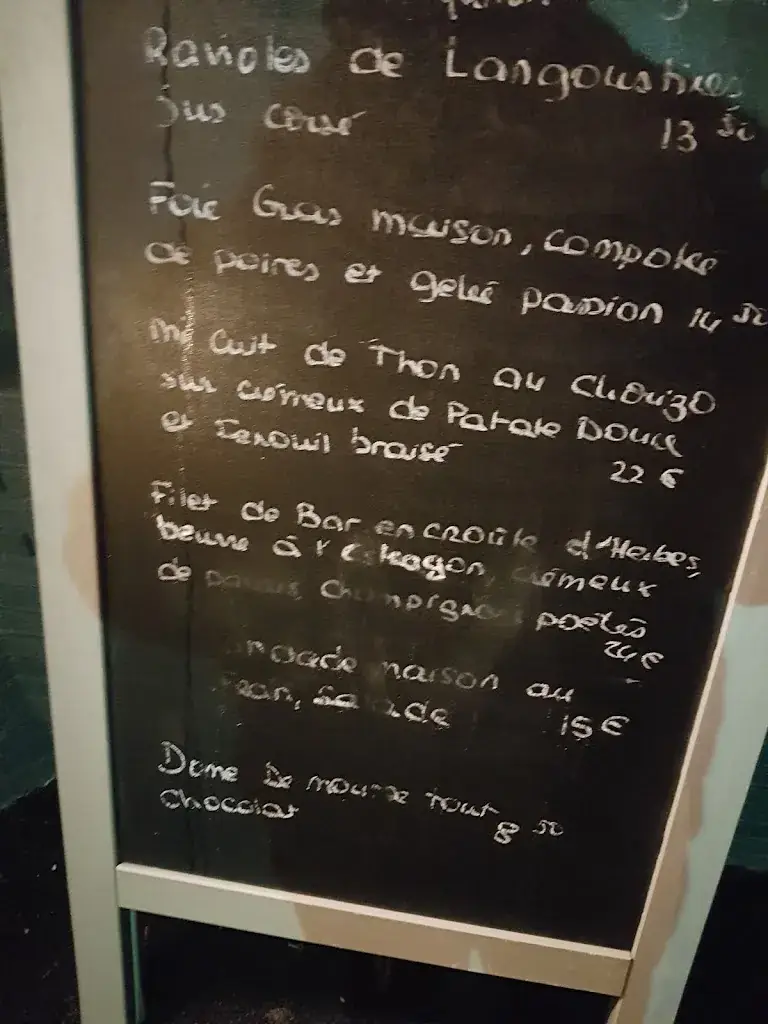 Ravioles de Langoustines
jus corsé 13 50
Foie Gras maison, compotée
de poires et gelée passion 14 50
mi cuit de Thon au Chorizo
sur crémeux de Patate Douce
et Fenouil braisé 22 €
Filet de Bar en croûte d'Herbes,
beurre à l'Estragon, crémeux
de panais Champignons poêlés
24 €
maison au
15 €
Dome de mousse tout
Chocolat 8 50